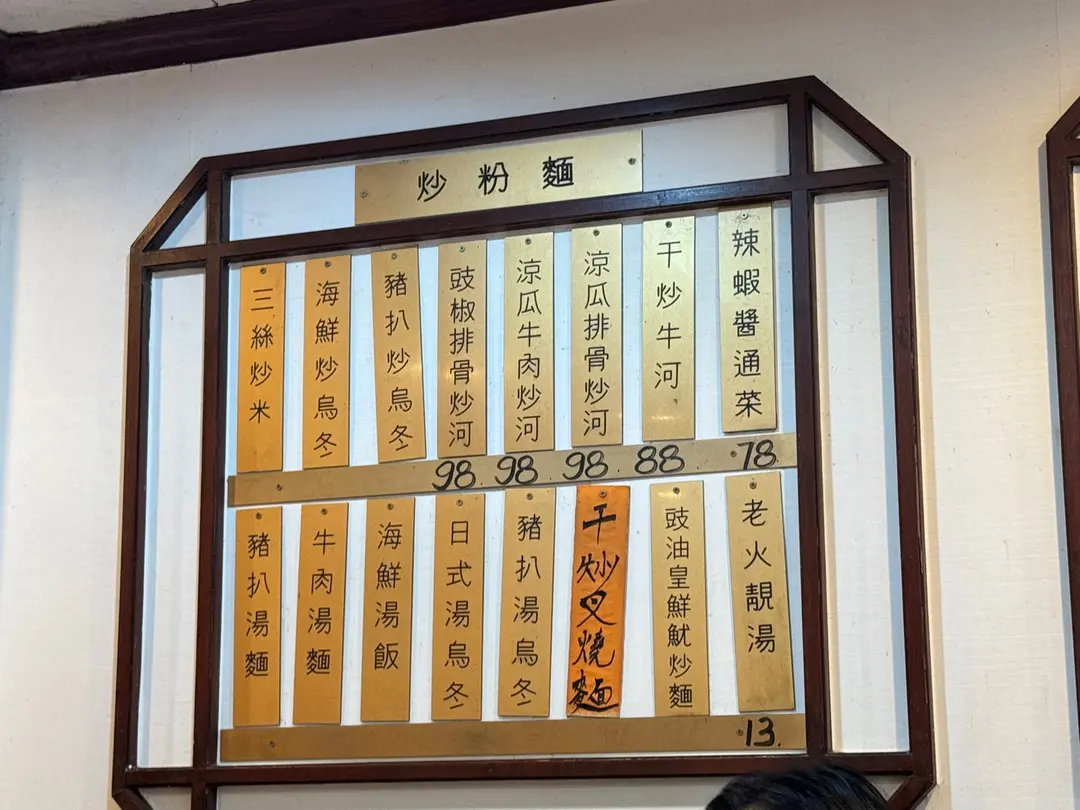 炒粉麵
辣蝦醬通菜
干炒牛河
涼瓜排骨炒河
涼瓜牛肉炒河
豉椒排骨炒河
豬扒炒烏冬
海鮮炒烏冬
三絲炒米
98 98 98 88 78
老火靚湯
豉油皇鮮魷炒麵
干炒叉燒麵
豬扒湯烏冬
日式湯烏冬
海鮮湯飯
牛肉湯麵
豬扒湯麵
13